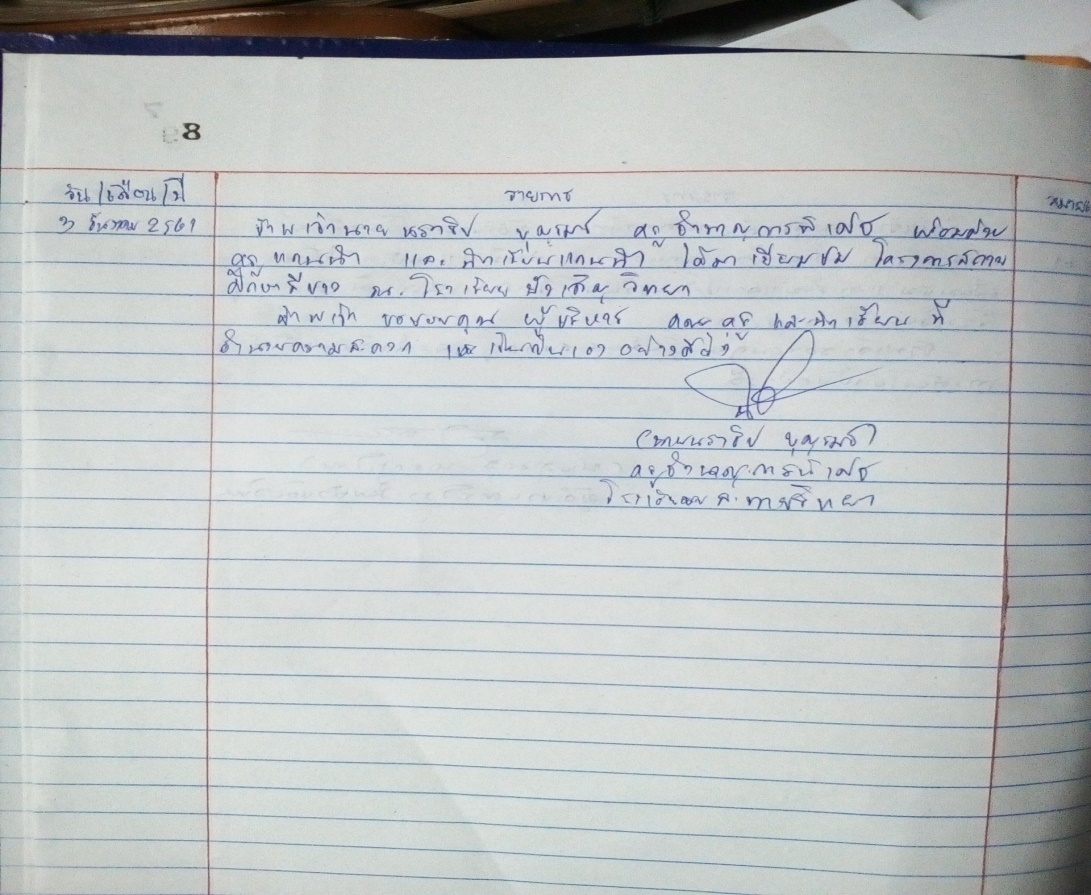 8
วัน/เดือน/ปี รายการ
3 ธันวาคม 2561 ข้าพเจ้านายนราธิป บุญรมย์ ครูชำนาญการพิเศษ พร้อมด้วย
ครูแกนนำ และนักเรียนแกนนำ ได้มาเยี่ยมชม โครงการสถาน
ศึกษาสีขาว ณ. โรงเรียน วิทยา
ข้าพเจ้า ขอขอบคุณ ผู้บริหาร คณะครู และนักเรียน ที่
อำนวยความสะดวก และเป็นกันเองอย่างดียิ่ง
(นายนราธิป บุญรมย์)
ครูชำนาญการพิเศษ
โรงเรียน